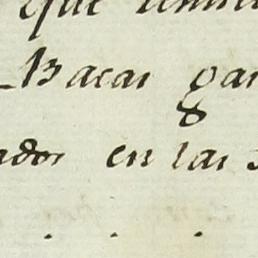 que
Bacas gan
ados en las